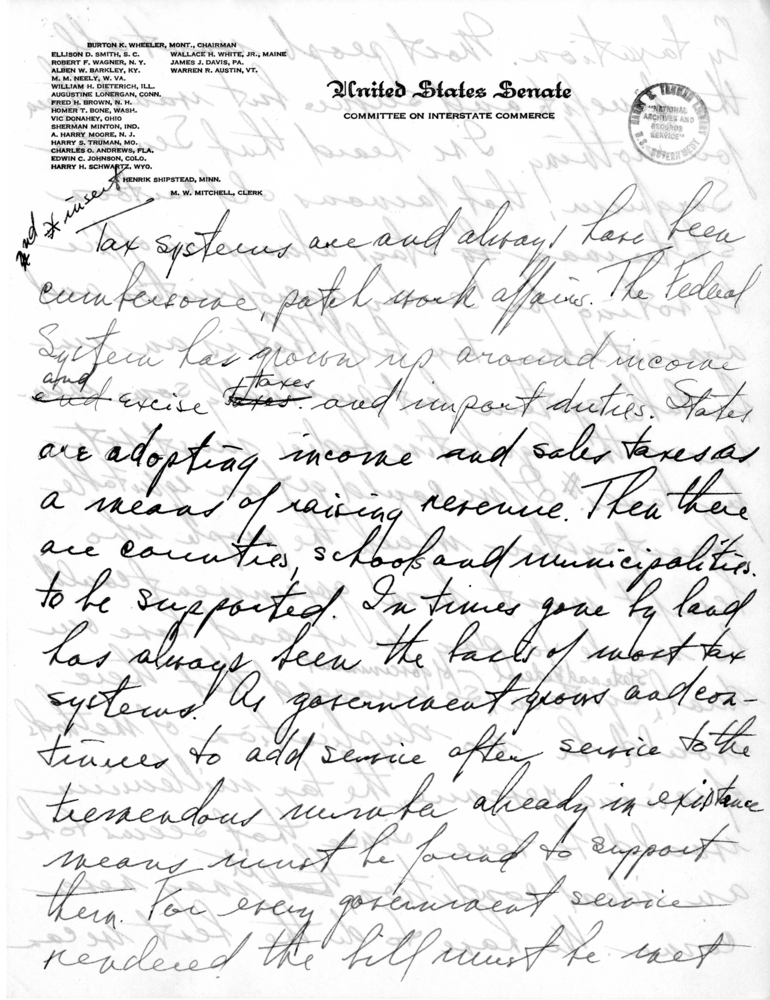 BURTON K. WHEELER, MONT., CHAIRMAN
ELLISON D. SMITH, S. C.
ROBERT F. WAGNER, N. Y.
ALBEN W. BARKLEY, KY.
M. M. NEELY, W. VA.
WILLIAM H. DIETERICH, ILL.
AUGUSTINE LONERGAN, CONN.
FRED H. BROWN, N. H.
HOMER T. BONE, WASH.
VIC DONAHEY, OHIO
SHERMAN MINTON, IND.
A. HARRY MOORE, N. J.
HARRY S. TRUMAN, MO.
CHARLES O. ANDREWS, FLA.
EDWIN C. JOHNSON, COLO.
HARRY H. SCHWARTZ, WYO.
WALLACE H. WHITE, JR., MAINE
JAMES J. DAVIS, PA.
WARREN R. AUSTIN, VT.
HENRIK SHIPSTEAD, MINN.
M. W. MITCHELL, CLERK
United States Senate
COMMITTEE ON INTERSTATE COMMERCE
HARRY S. TRUMAN LIBRARY
"NATIONAL
ARCHIVES AND
RECORDS
SERVICE"
U.S. GOVERNMENT
2nd * insert
Tax systems are and always have been
cumbersome, patch work affairs. The Federal
System has grown up around income
and excise taxes and import duties. States
are adopting income and sales taxes as
a means of raising revenue. Then there
are counties, schools and municipalities.
to be supported. In times gone by land
has always been the basis of most tax
systems. As government grows and con-
tinues to add service after service to the
tremendous number already in existance
means must be found to support
them. For every government service
rendered the bill must be met